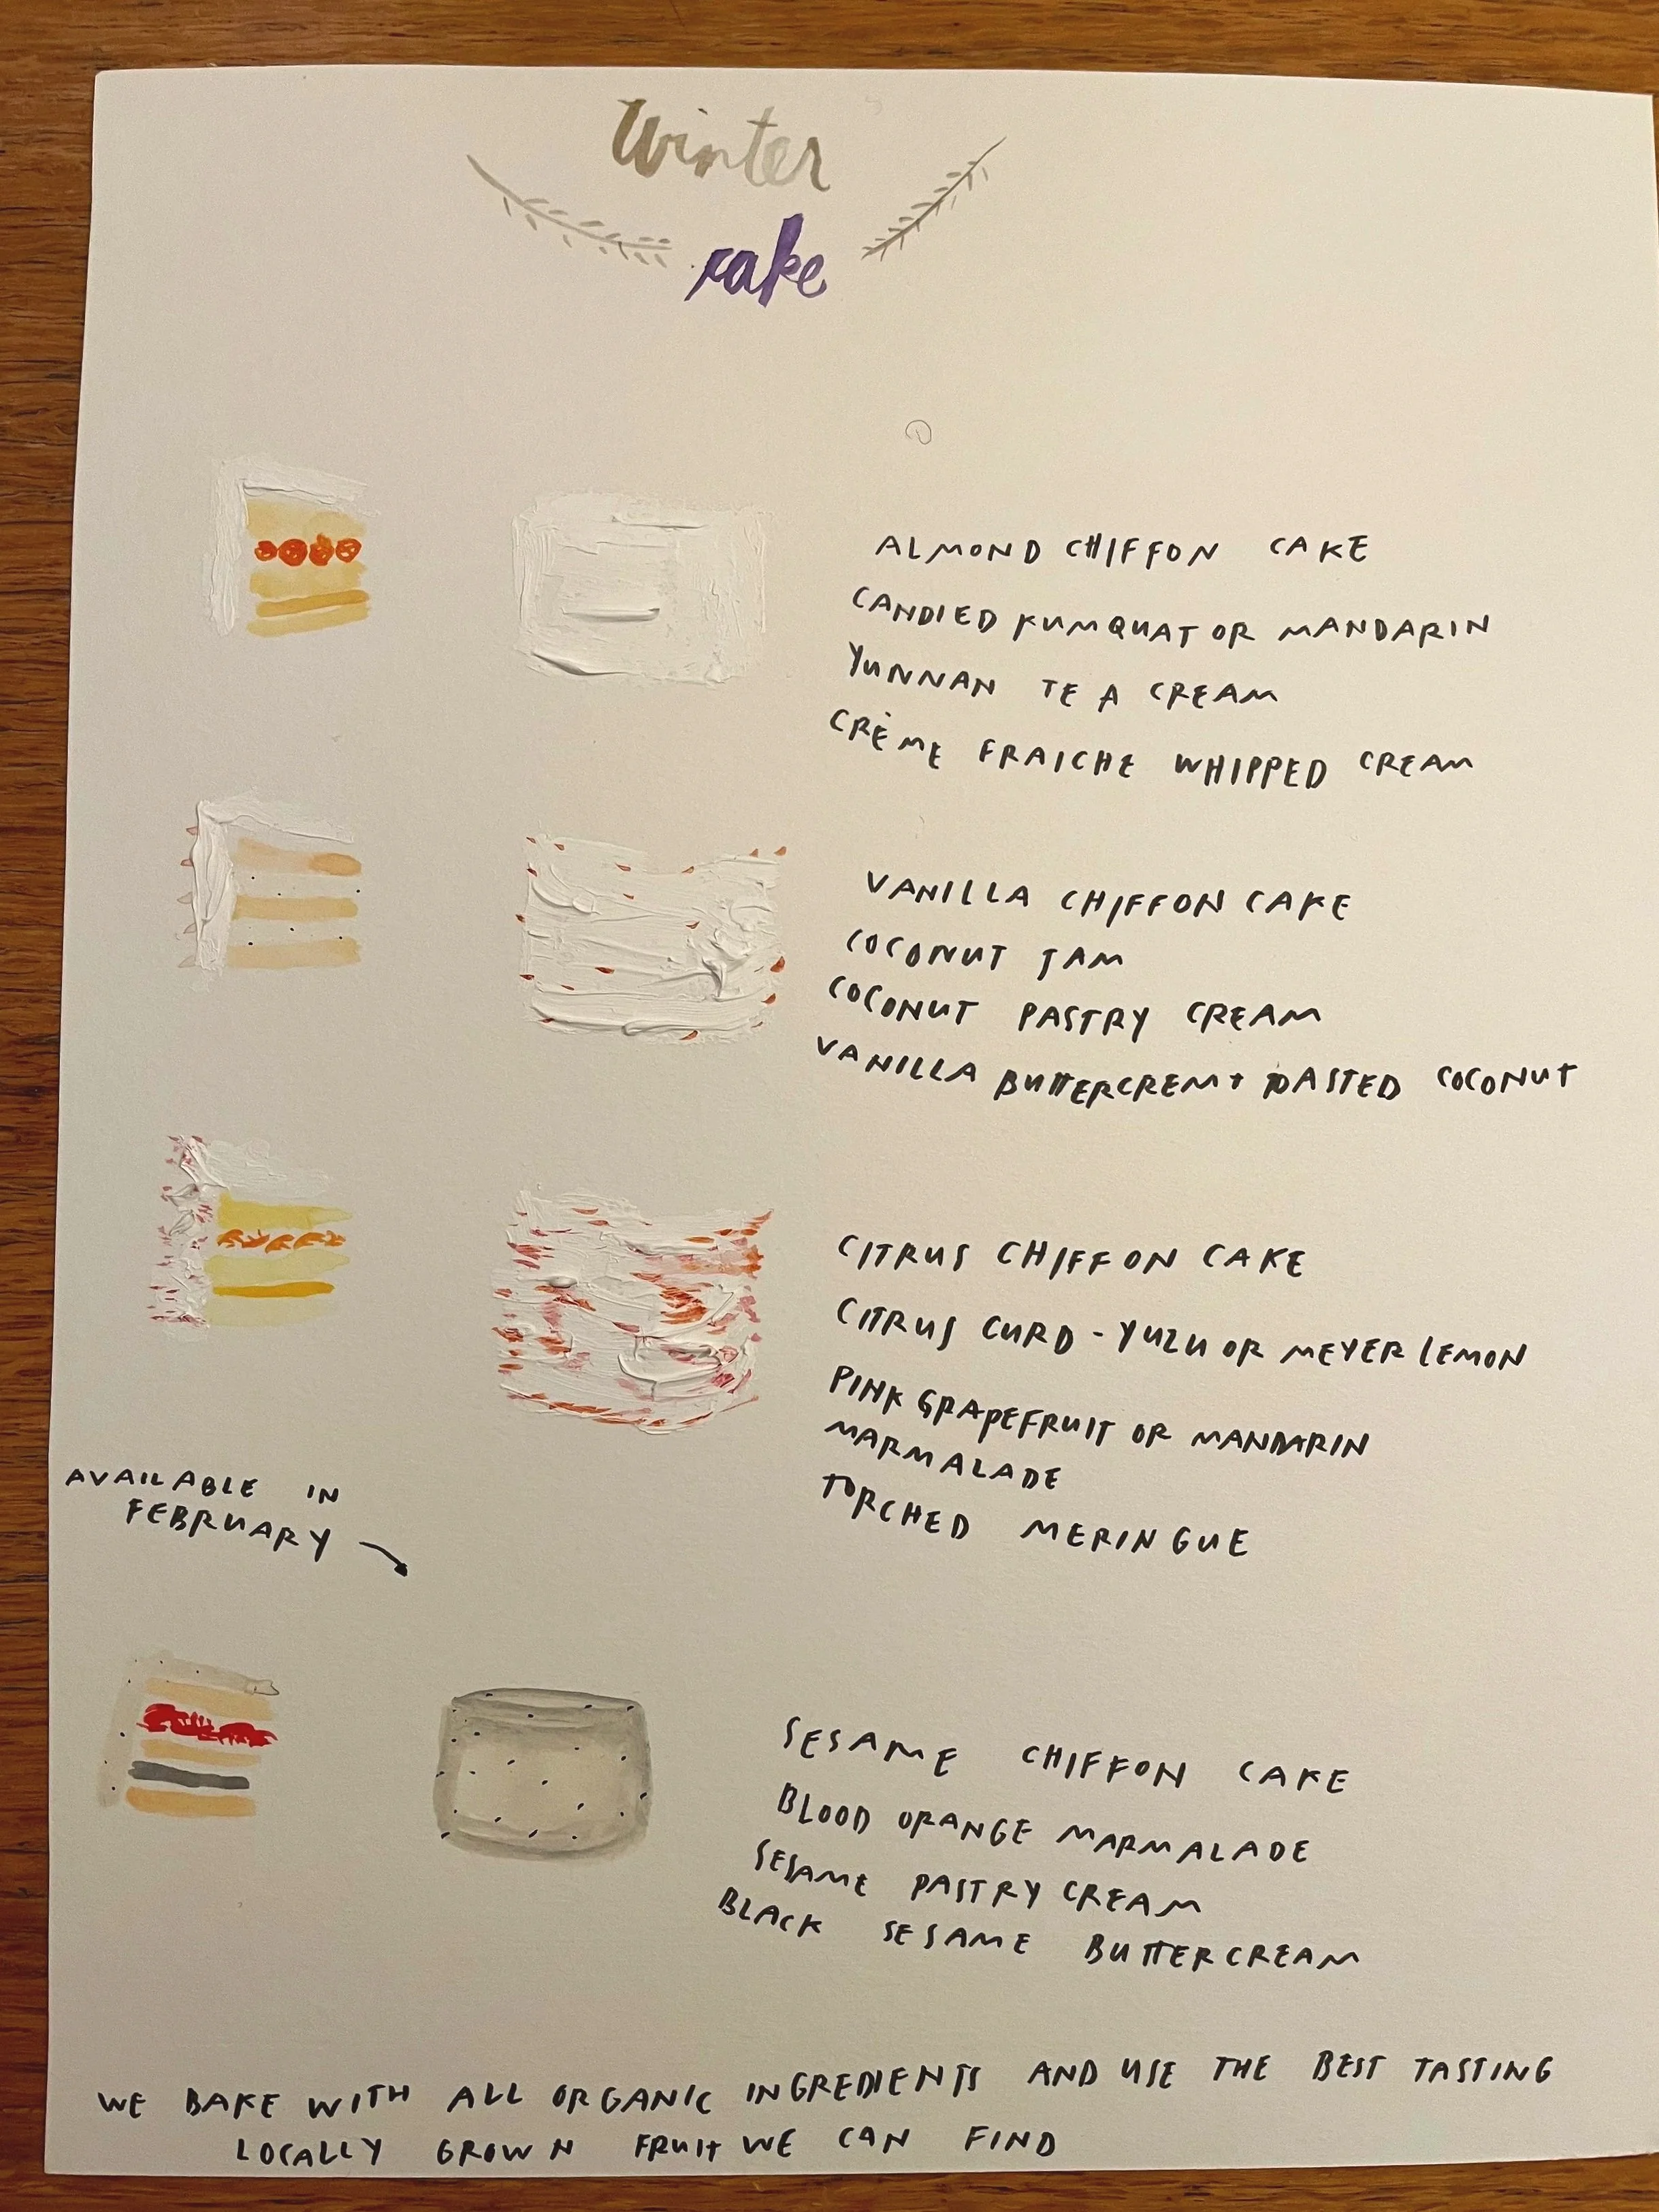 Winter
cake
ALMOND CHIFFON CAKE
CANDIED KUMQUAT OR MANDARIN
YUNNAN TEA CREAM
CRÈME FRAICHE WHIPPED CREAM
VANILLA CHIFFON CAKE
COCONUT JAM
COCONUT PASTRY CREAM
VANILLA BUTTERCREM + TOASTED COCONUT
CITRUS CHIFFON CAKE
CITRUS CURD - YUZU OR MEYER LEMON
PINK GRAPEFRUIT OR MANDARIN
MARMALADE
TORCHED MERINGUE
AVAILABLE IN
FEBRUARY
SESAME CHIFFON CAKE
BLOOD ORANGE MARMALADE
SESAME PASTRY CREAM
BLACK SESAME BUTTERCREAM
WE BAKE WITH ALL ORGANIC INGREDIENTS AND USE THE BEST TASTING
LOCALLY GROWN FRUIT WE CAN FIND